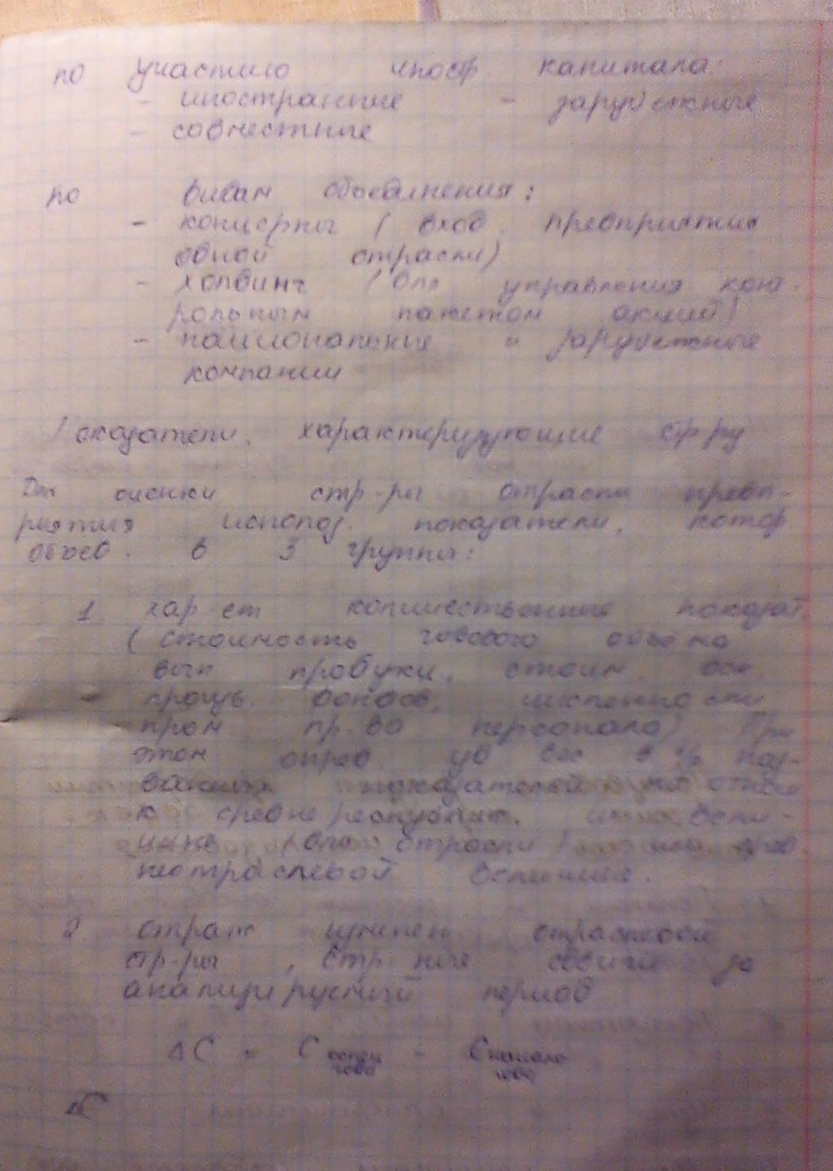 по участию иностр. капитала:
- иностранные - зарубежные
- совместные
по видам объединения:
- концерны ( вход. предприятия
одной отрасли)
- холдинг (для управления конт-
рольным пакетом акций)
- национальные и зарубежные
компании
Показатели, характеризующие стр-ру
Для оценки стр-ры отрасли предп-
риятия использ. показатели, котор
объед. в 3 группы:
1. хар-ет количественные показат.
( стоимость годового объема
вып продукц., стоим. осн
- произв. фондов, численности
пром. пр-во персонала) При
этом опред. уд вес в % наз-
показателей по отнош
к среднереспублик. вели-
чине (для отрасли) или сред
неотраслевой величине.
2 отраж изменен отраслевой
стр-ры , стр-ные сдвиги за
анализируемый период
ΔC = C конец года - C начало года
ΔC